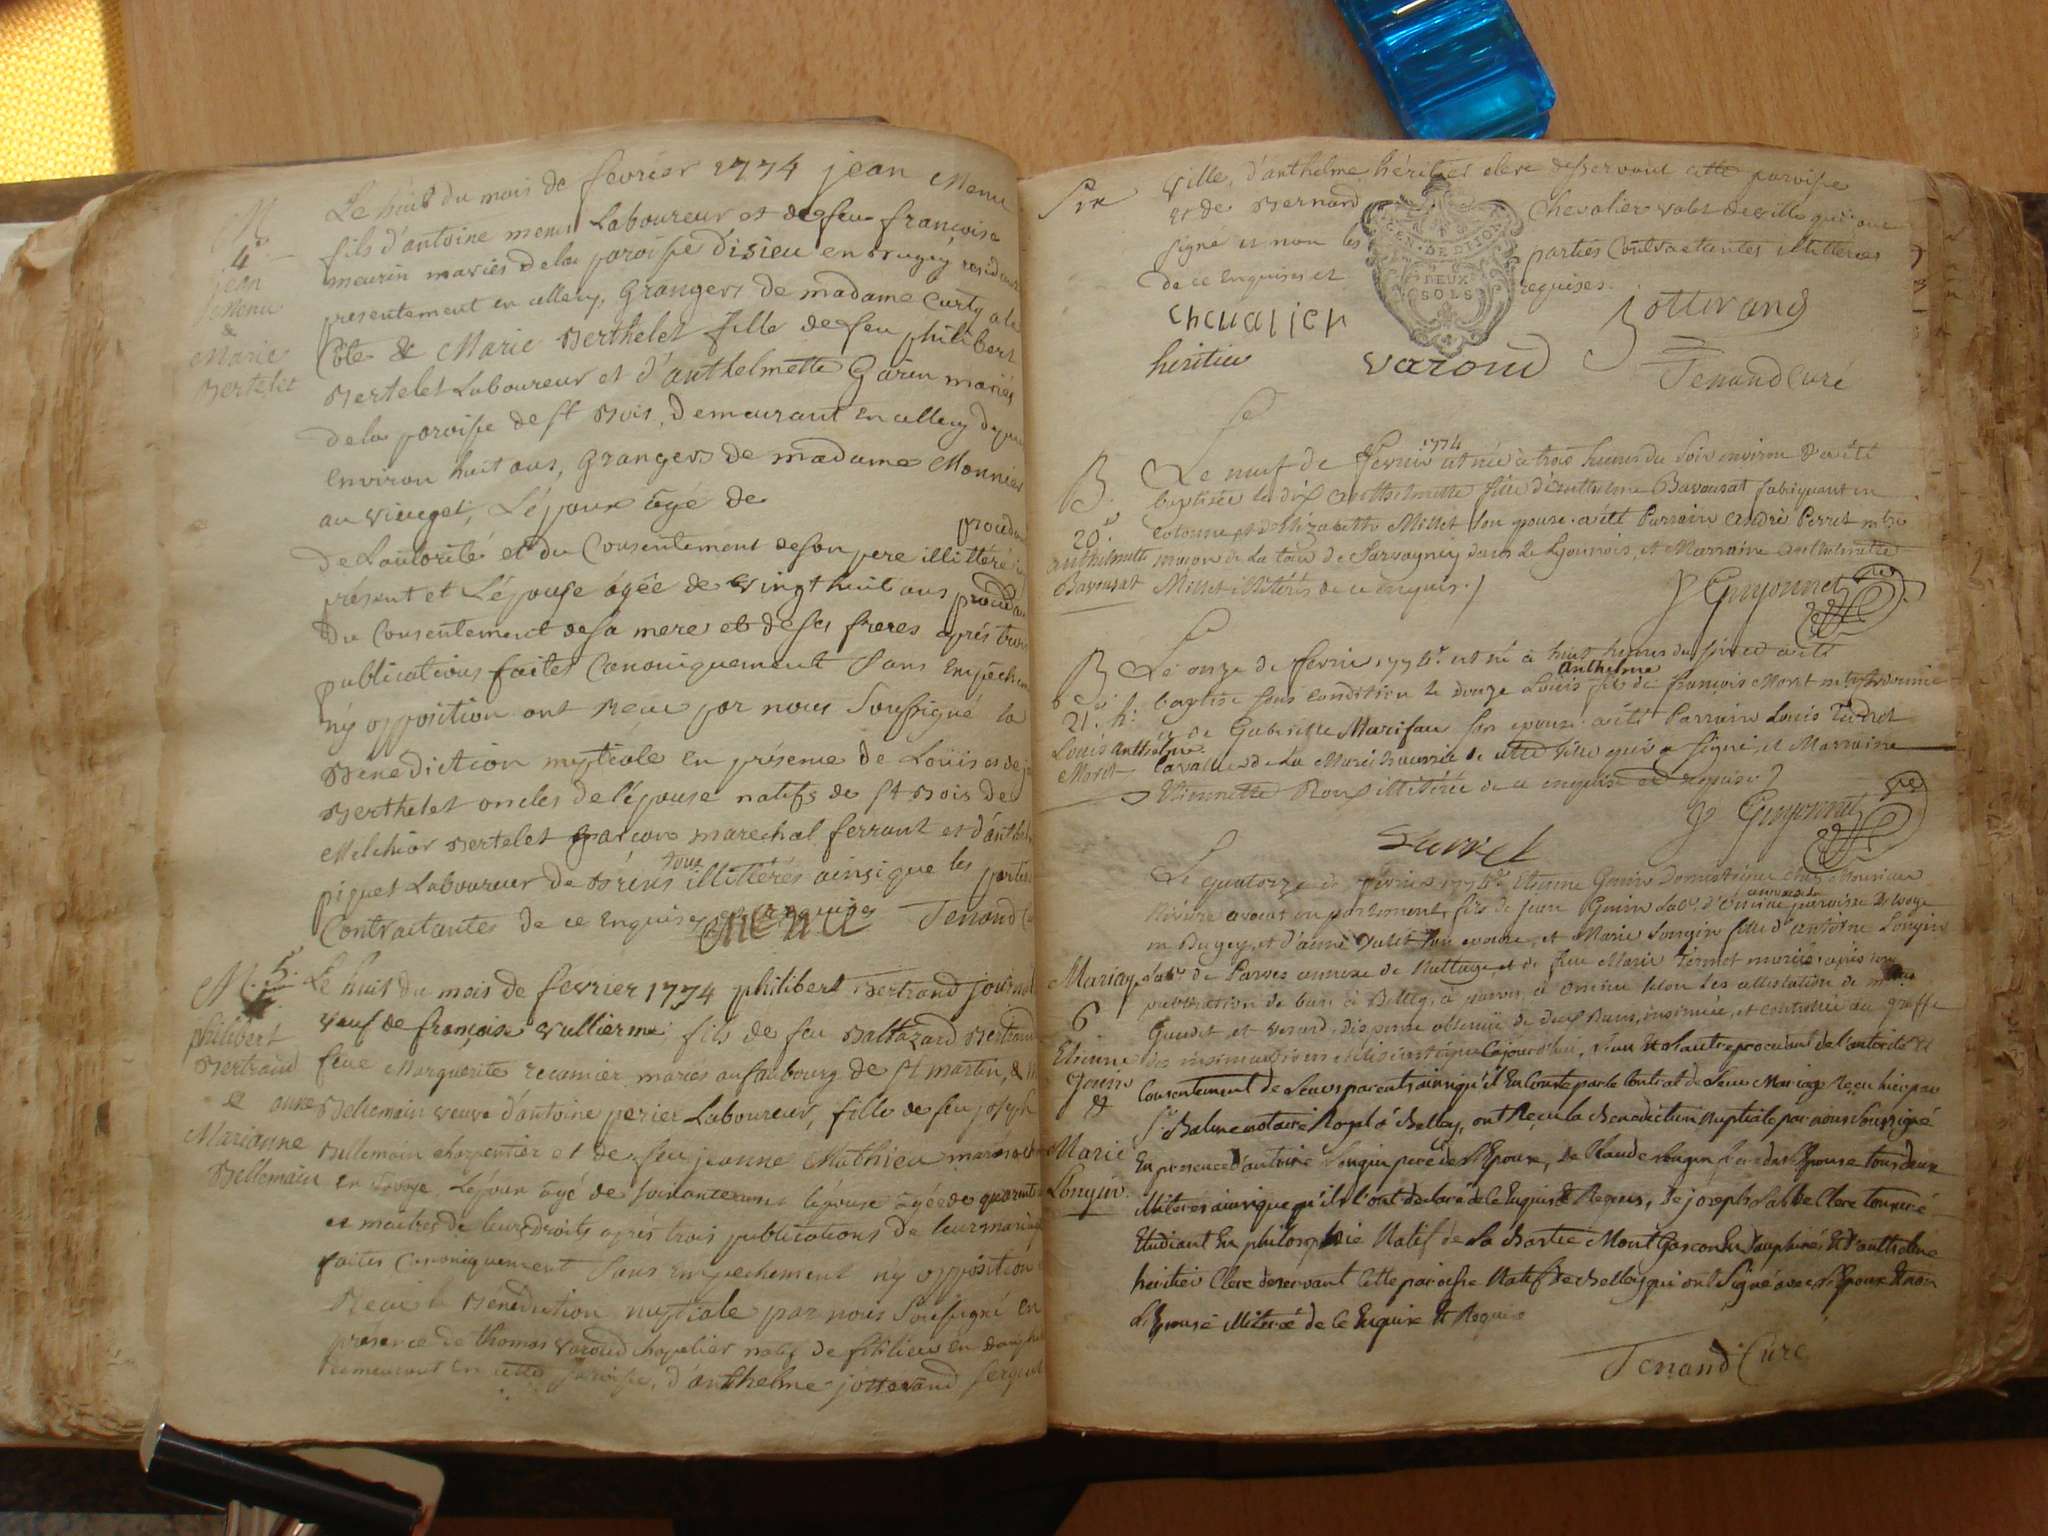 M.
4e
jean
Menu
&
Marie
Bertelet
Le huit du mois de fevrier 1774 jean Menu
fils d'antoine menu Laboureur et de feu françoise
meurin mariés de la paroisse d'isieu en bugey residant
presentement en illery, Grangers de madame Curty a la
Côte & Marie Berthelet fille de feu philibert
Bertelet Laboureur et d'anthelmette Garin mariés
de la paroisse de st Bois, demeurant en illery depuis
environ huit ans, Grangers de madame Monnier
au vieuget, L'époux âgé de
procédant
de L'autorité et du Consentement de son pere illitteré
présent et L'épouse âgée de vingt huit ans procédant
du Consentement de sa mere et de ses freres après trois
publications faites Canoniquement Sans Empechement
ny opposition ont Recu par nous Soussigné la
Benediction nuptiale en présence de Loüis
Berthelet oncles de l'épouse natifs de st Bois de
Melchior Bertelet garçon marechal ferrant et d'anthelme
piguet Laboureur de Brens tous illittérés ainsi que les parties
Contractantes de ce Enquises et requises Tenand Curé
menu
M. 5e
philibert
Bertrand
&
Marianne
Bellemain
Le huit du mois de fevrier 1774 philibert Bertrand journalier
veuf de françoise vullierme fils de feu Baltazard Bertrand
feue Marguerite recamier mariés au faubourg de st martin, &
anne Bellemain veuve d'antoine perier Laboureur, fille de feu joseph
Bellemain charpentier et de feu jeanne Mathieu mariés
en Savoye, L'époux âgé de soixante ans l'épouse âgée de quarante
et maitres de leurs droits après trois publications de leur mariage
faites Canoniquement Sans Empechement ny opposition
Recu la Benediction nuptiale par nous Soussigné En
presence de thomas varoud chapelier natif de
demeurant En cette paroisse, d'anthelme jotterand sergent
Six
ville, d'anthelme héritier clerc desservant cette paroisse
et de Bernard Chevalier valet de ville qui ont
signé et non les parties Contractantes illitterées
de ce Enquises et requises.
GEN. DE DIJON
DEUX
SOLS
chevalier
Jotterand
héritier
varoud
Tenand Curé
B.
20e
anthelmette
Bavousat
Le neuf de fevrier 1774 est née à trois heures du soir environ et a été
baptisée le dix anthelmette fille d'anthelme Bavousat fabriquant en
cotonne et d'Elizabeth Millet son epouse a été Parrain andré Perret mtre
maçon de La tour de Sarvagney dans le Lyonnois, et Marraine anthelmette
Millet illitérés de ce enquis.
J Guyonnet
B
21e
Loüis anthelme
Moret
Le onze de fevrier 1774 est né à huit heures du soir et a été
baptisé sous condition le douze Loüis anthelme fils de françois Moret
et de Gabrielle Marifau son epouse a été Parrain Loüis
cavalier de La Maréchaussée de cette ville qui a signé, et Marraine
Etiennette Roux illitérée de ce enquise et requise
J Guyonnet
Mariage
6
Etienne
Gouin
&
Marie
Longin
Le quatorze de fevrier 1774 Etienne Gouin Domestique chez Monsieur
Riviere avocat en parlement, fils de jean Gouin Labr
en Bugey, et d'anne son epouse, et Marie Longin fille d'antoine Longin
Labr de Parves annexe de Nattage et de feu Marie mariés après une
publication de bans à Belley, à parves, à selon les attestation de
et dispense obtenue de deux Bans, insinuée, et controlée au greffe
des insinuations ecclesiastiques Cejourd'hui, L'un Et L'autre procedant de l'autorité Et
Consentement de Leurs parents ainsi qu'il En Conste par le Contrat de Leur Mariage Reçu hier par
Sr Balme notaire Royal à Belley, ont Reçu la Benediction Nuptiale par nous Soussigné
En presence d'antoine Longin pere de L'Epouse, De Claude Longin frere de L'Epouse tous deux
illiterés ainsi que qu'ils l'ont declaré de Ce Enquis & Requis, De joseph Labbe Clerc tonsuré
Etudiant En philosophie Natif de La Bastie Mont Gascon En Dauphiné, Et D'anthelme
heritier Clerc desservant Cette paroisse Natif de Belley qui ont Signé avec L'Epoux Et non
L'Epouse illiterée de Ce Enquise Et Requise
Tenand Curé